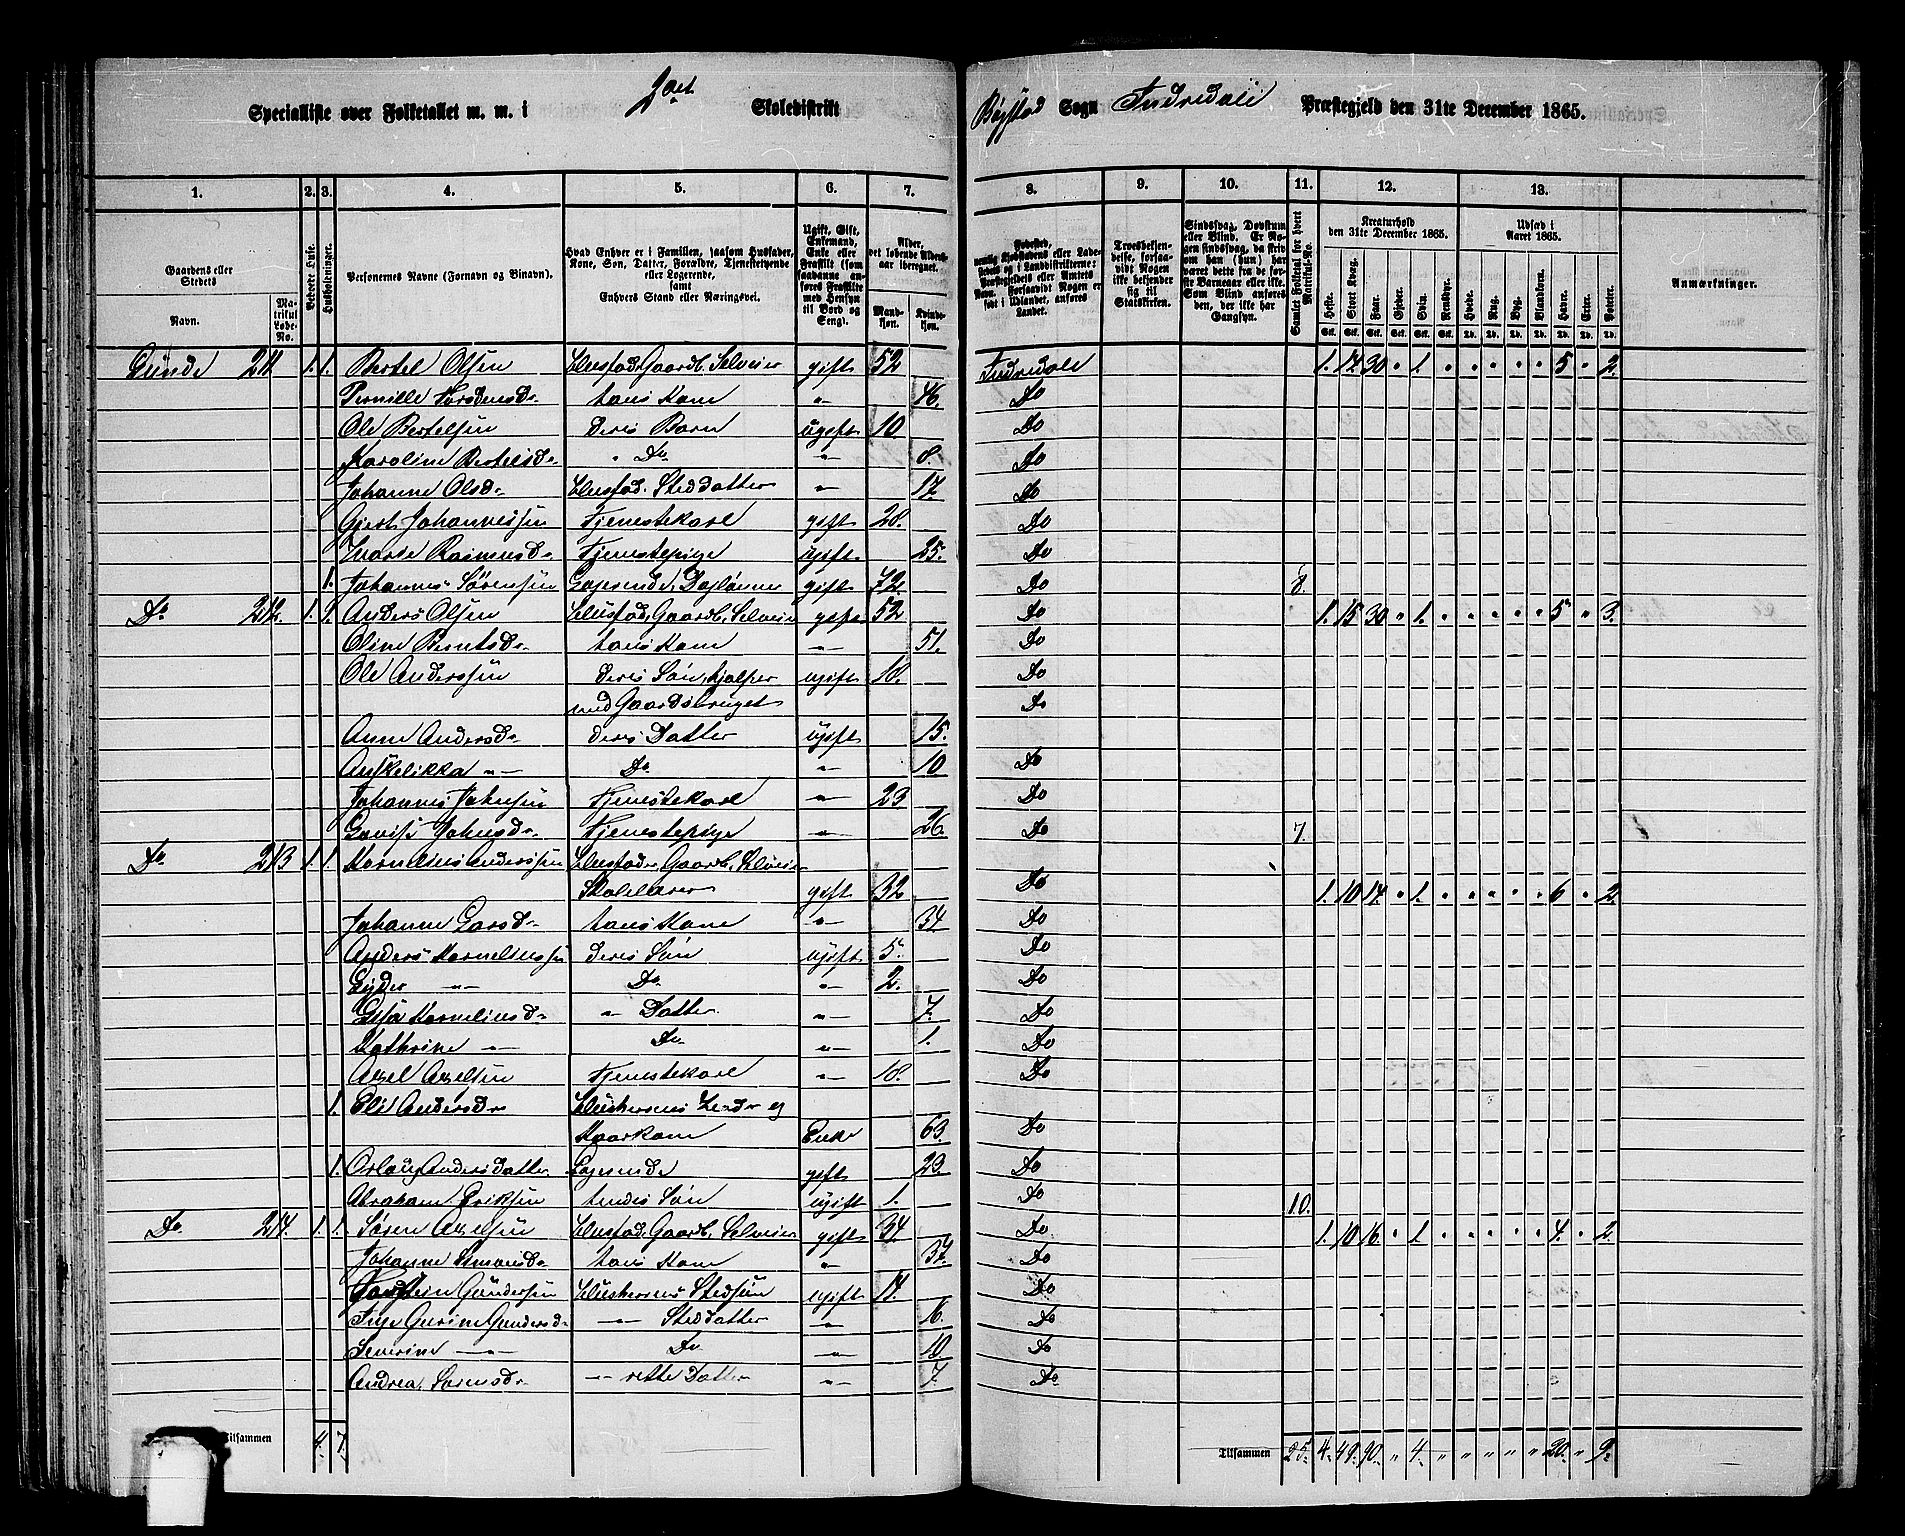 Specialliste over Folketallet m. m. i 2det Skoledistrikt Bøjstad Sogn Indredale Præstegjeld den 31te December 1865.
1. 2. 3. 4. 5. 6. 7. 8. 9. 10. 11. 12. 13.
Gaardens eller Stedets Navn.
Matrikul Løbe-No.
Beboede Huse.
Husholdninger.
Personernes Navne (Fornavn og Binavn).
Hvad Enhver er i Familien, saasom Husfader, Kone, Søn, Datter, Forældre, Tjenestetyende eller Logerende, samt Enhvers Stand eller Næringsvei.
Ugift, Gift, Enkemand, Enke eller Fraskilt (saavanne anføres Fraskilte med Hensyn til Bord og Seng).
Alder, det løbende Aldersaar iberegnet.
Mandkjøn. Kvindekjøn.
Fødested,
Troesbekjendelse, forsaavidt Nogen ikke bekjender sig til Statskirken.
Sindssvag, Døvstum eller Blind.
Samlet Folketal for hvert Matrikul-No.
Kreaturhold den 31te December 1865.
Heste. Stort Kvæg. Faar. Gjeder. Svin. Rensdyr.
Udsæd i Aaret 1865.
Hvede. Rug. Byg. Blandkorn. Havre. Erter. Poteter.
Anmærkninger.
211. 1. 1. Bertel Olsen Husfad. Gaardb. Selveier gift 52 Indredale 1. 14. 30 " 1. " " " " " 5 " 2.
Pernille hans Kone " 46. Do
Ole Bertelsen deres Barn ugift 10 Do
Karoline Bertelsd. " Do " 8. Do
Johanne Olsd. Husfad. Steddatter " 17 Do
Gjert Johannessen Tjenestekarl gift 28. Do
Rasmusd. Tjenestepige ugift 25. Do
1. Johannes Sørensen Logerende, Daglønner gift 72. Do 8.
Do 212. 1. Anders Olsen Husfad, Gaardb, Selveier gift 52 Do 1. 15 30 " 1. " " " " " 5 " 3.
Oline Berntsd. hans Kone " 51. Do
Ole Anderssen deres Søn, hjelper ugift 18. Do
med Gaardsbruget Do
Anne Andersd. deres Datter ugift 15.
" Do " 10 Do
Johannes Johnsen Tjenestekarl " 23 Do
Johnsd. Tjenestepige " 26 Do 7.
Do 213 1. 1. Kornelius Anderssen Husfader, Gaardb, Selveier
Skolelærer gift 32 Do 1. 10 14. " 1. " " " " " 6 " 2
Johanne Larsd. hans Kone " 34 Do
Anders Korneliussen deres Søn ugift 5. Do
" Do " 2. Do
Korneliusd. " Datter " 7. Do
Kathrine " Do " 1. Do
Axel Axelsen Tjenestekarl " 18. Do
1. Eli Andersd.
Kaarkone Enke 63. Do
1. Andersdatter Logerende gift 23. Do
Abraham Eriksen hendes Søn ugift 1. Do 10.
Do 214. 1. 1. Søren Axelsen Husfad, Gaardb, Selveier gift 34 Do 1. 10 16. " 1. " " " " " 4. " 2.
Johanne Simonsd. hans Kone " 37. Do
Gundersen Husherrens Stedsøn ugift 14. Do
Gundersd. " Steddatter " 16. Do
Severine " Do " 10. Do
Andrea Sørensd. " rette Datter " 7. Do
Tilsammen 4. 7. Tilsammen 25. 4. 49. 90. " 4. " " " " " 20. " 9.